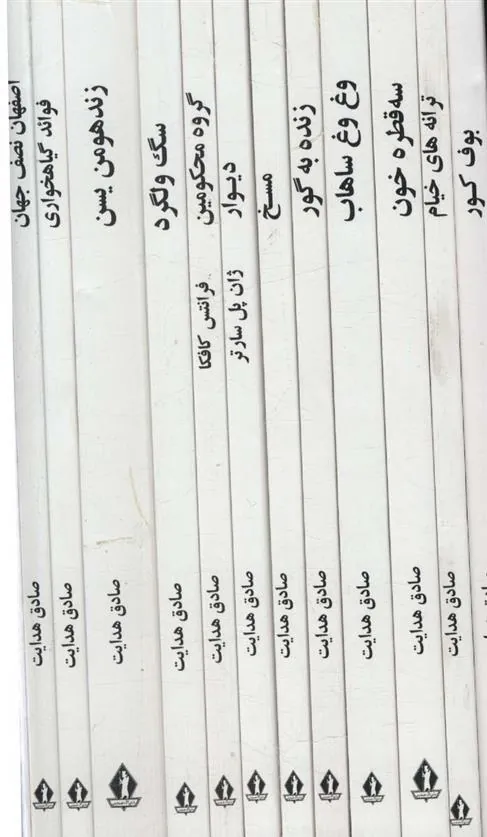 اصفهان نصف جهان
صادق هدایت
فوائد گیاهخواری
صادق هدایت
زند هومن یسن
صادق هدایت
سگ ولگرد
صادق هدایت
گروه محکومین
فرانتس کافکا
صادق هدایت
دیوار
ژان پل سارتر
صادق هدایت
مسخ
صادق هدایت
زنده به گور
صادق هدایت
وغ وغ ساهاب
صادق هدایت
سه قطره خون
صادق هدایت
ترانه های خیام
صادق هدایت
بوف کور